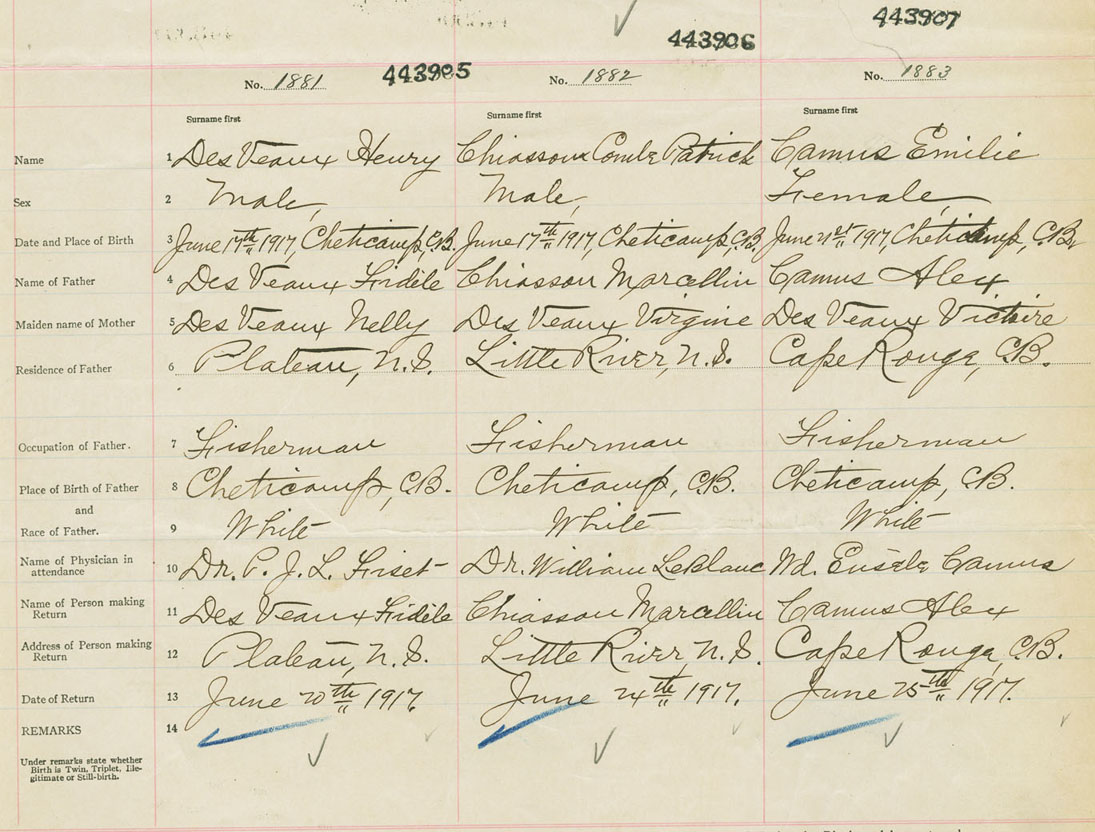 443905 443906 443907
No. 1881 No. 1882 No. 1883
Surname first Surname first Surname first
Name 1 Des Veaux Henry Chiasson Combe Patrick Camus Emilie
Sex 2 Male, Male, Female,
Date and Place of Birth 3 June 17th 1917, Cheticamp, C.B. June 17th 1917, Cheticamp, C.B. June 21st 1917 Cheticamp, C.B.
Name of Father 4 Des Veaux Fidèle Chiasson Marcellin Camus Alex
Maiden name of Mother 5 Des Veaux Nelly Des Veaux Virgine Des Veaux Victoire
Residence of Father 6 Plateau, N.S. Little River, N.S. Cape Rouge, C.B.
Occupation of Father. 7 Fisherman Fisherman Fisherman
Place of Birth of Father 8 Cheticamp, C.B. Cheticamp, C.B. Cheticamp, C.B.
and
Race of Father. 9 White White White
Name of Physician in attendance 10 Dr. P. J. L. Fiset Dr. William LeBlanc Wd. Camus
Name of Person making Return 11 Des Veaux Fidèle Chiasson Marcellin Camus Alex
Address of Person making Return 12 Plateau, N.S. Little River, N.S. Cape Rouge, C.B.
Date of Return 13 June 20th 1917. June 24th 1917. June 25th 1917.
REMARKS 14
Under remarks state whether
Birth is Twin, Triplet, Ille-
gitimate or Still-birth.